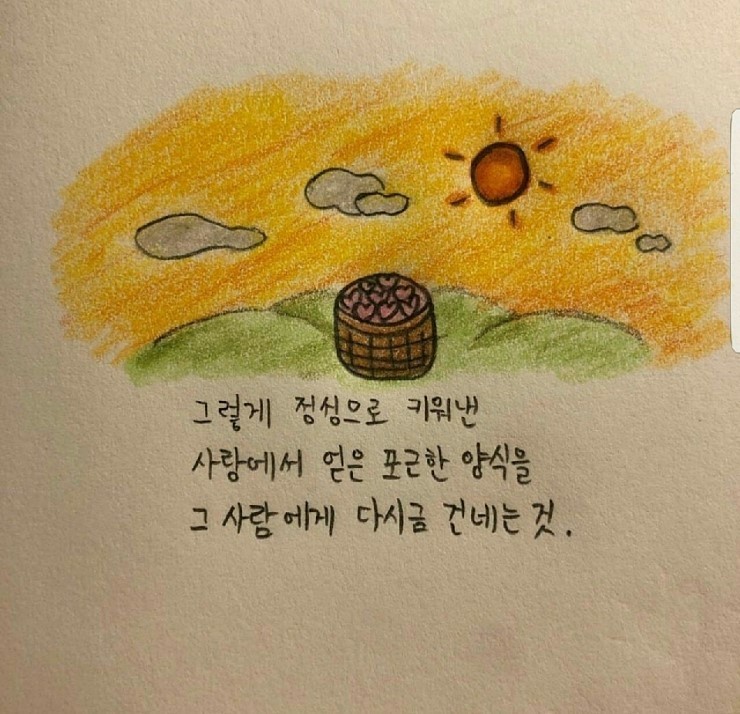 그렇게 정성으로 키워낸
사랑에서 얻은 포근한 양식을
그 사람에게 다시금 건네는 것.